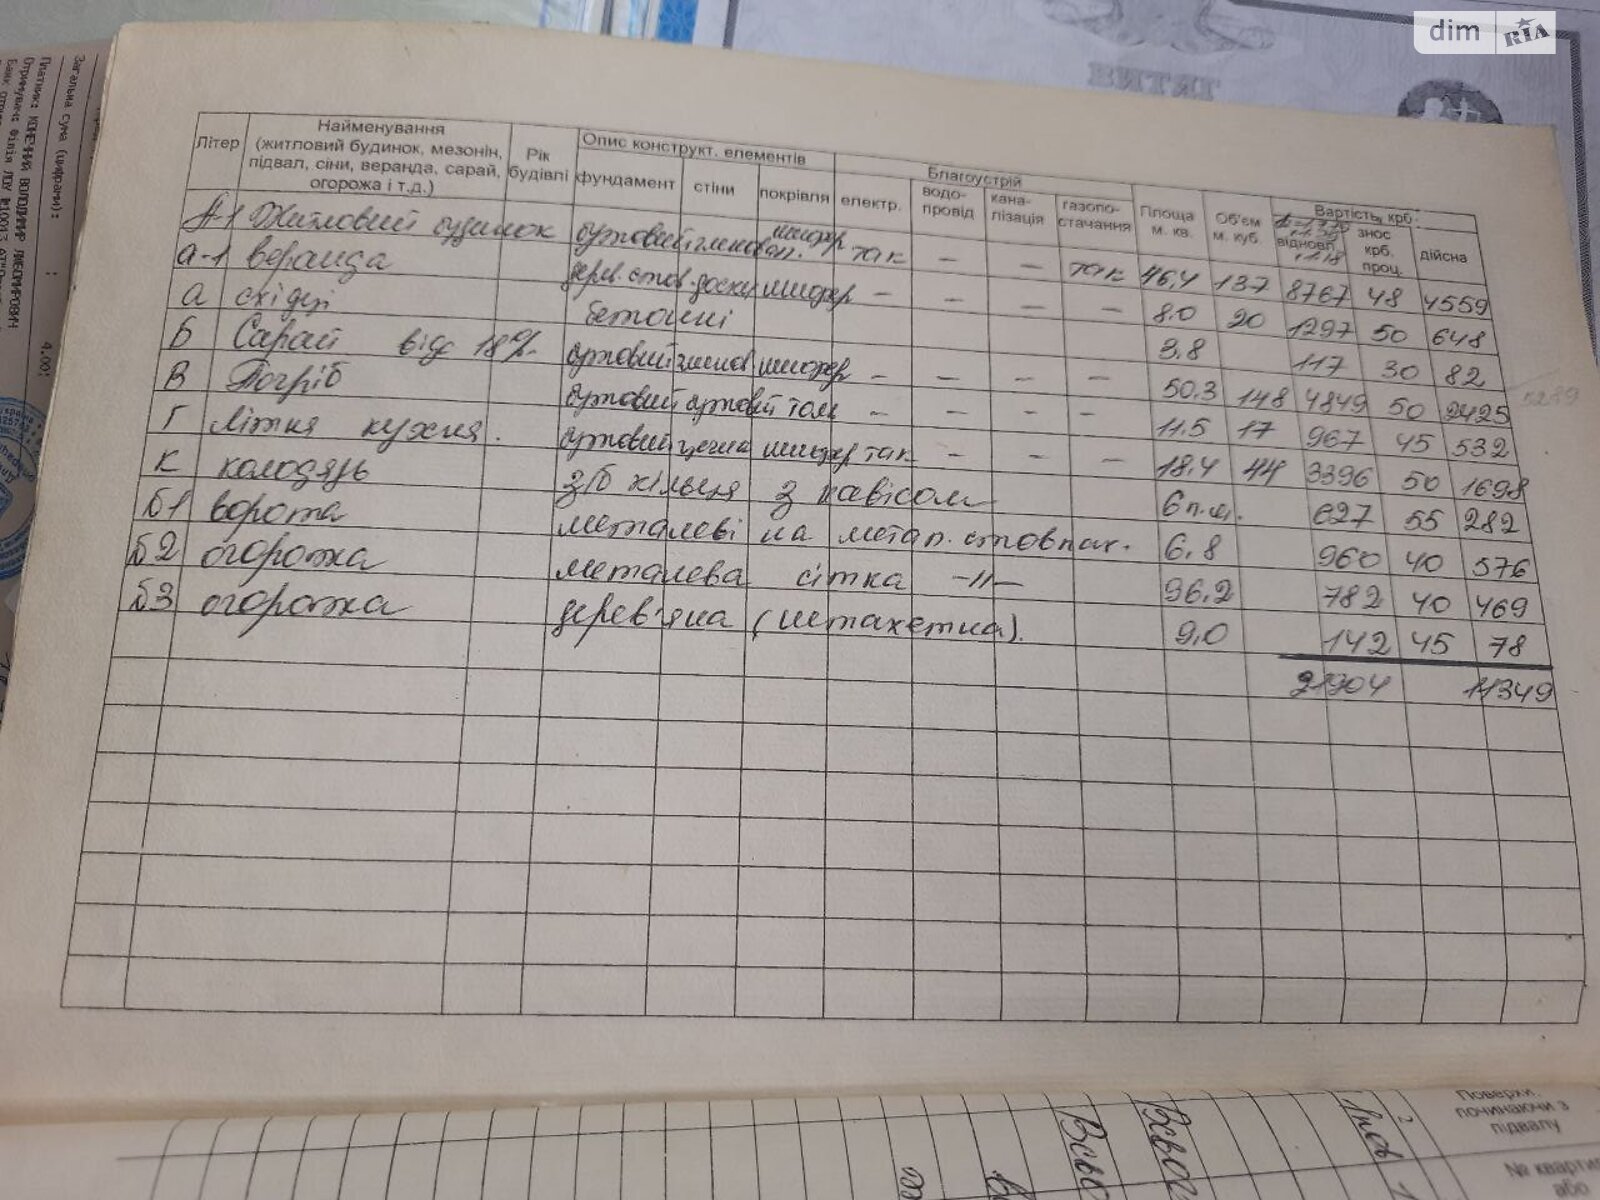 dim RIA
ВИТЯГ
Загальна сума (цифрами): : 4.00:
Платник: КОНЕЧНИЙ ВОЛОДИМИР ЛЮБОМИРОВИЧ
Літер
Найменування
(житловий будинок, мезонін,
підвал, сіни, веранда, сарай,
огорожа і т.д.)
Рік
будівлі
Опис конструкт. елементів
фундамент
стіни
покрівля
Благоустрій
електр.
водо-
провід
кана-
лізація
газопо-
стачання
Площа
м. кв.
Об'єм
м. куб.
Вартість, крб.
відновл.
знос
крб.
проц.
дійсна
А-1 Житловий будинок бутовий глинован. шифер так – – так 46,4 137 8767 48 4559
а-1 веранда дерев. стов. доски шифер – – – – 8.0 20 1297 50 648
а східці бетонні 3,8 117 30 82
Б Сарай від 18%. бутовий глинов шифер – – – – 50.3 148 4849 50 2425
В Погріб бутовий бутовий толь – – – – 11.5 17 967 45 532
Г літня кухня. бутовий цегла шифер так – – – 18.4 44 3396 50 1698
К колодязь з/б кільця з навісом 6 п.м. 627 55 282
Б1 ворота металеві на метал. стовпах. 6,8 960 40 576
Б2 огорожа металева сітка –//– 96,2 782 40 469
Б3 огорожа дерев'яна (штахетна). 9,0 142 45 78
21904 11349
Поверхи,
починаючи з
підвалу
№ квартир
або